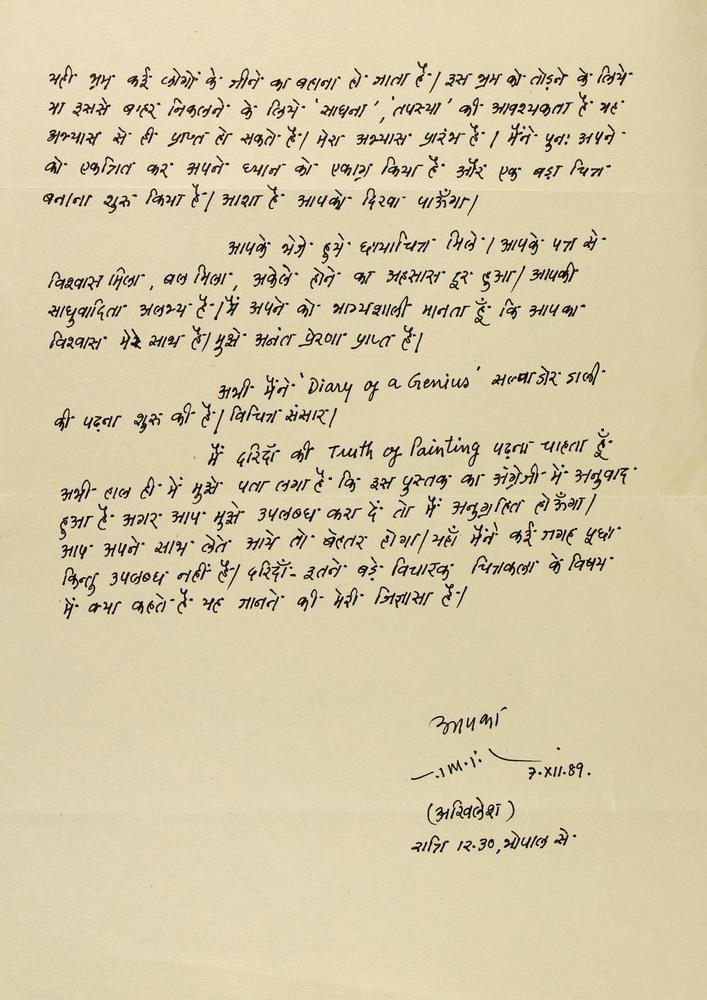 यही भ्रम कई लोगों के जीने का बहाना हो जाता है। इस भ्रम को तोड़ने के लिये
या इससे बाहर निकलने के लिये 'साधना', 'तपस्या' की आवश्यकता है यह
अभ्यास से ही प्राप्त हो सकते है। मेरा अभ्यास प्रारंभ है। मैंने पुनः अपने
को एकत्रित कर अपने ध्यान को एकाग्र किया है और एक बड़ा चित्र
बनाना शुरू किया है। आशा है आपको दिखा पाऊँगा।
आपके भेजे हुये छायाचित्र मिले। आपके पत्र से
विश्वास मिला, बल मिला, अकेले होने का अहसास दूर हुआ। आपकी
साधुवादिता अलभ्य है। मैं अपने को भाग्यशाली मानता हूँ कि आपका
विश्वास मेरे साथ है। मुझे अनंत प्रेरणा प्राप्त है।
अभी मैंने 'Diary of a Genius' सल्वाडोर डाली
की पढ़ना शुरू की है। विचित्र संसार।
मैं दरिदाँ की Truth of Painting पढ़ना चाहता हूँ
अभी हाल ही में मुझे पता लगा है कि इस पुस्तक का अंग्रेजी में अनुवाद
हुआ है अगर आप मुझे उपलब्ध करा दें तो मैं अनुग्रहित होऊँगा।
आप अपने साथ लेते आये तो बेहतर होगा। यहाँ मैंने कई जगह पूछा
किन्तु उपलब्ध नहीं है। दरिदाँ- इतने बड़े विचारक चित्रकला के विषय
में क्या कहते है यह जानने की मेरी जिज्ञासा है।
आपका
7.XII.89.
(अखिलेश)
रात्रि 12.30, भोपाल से